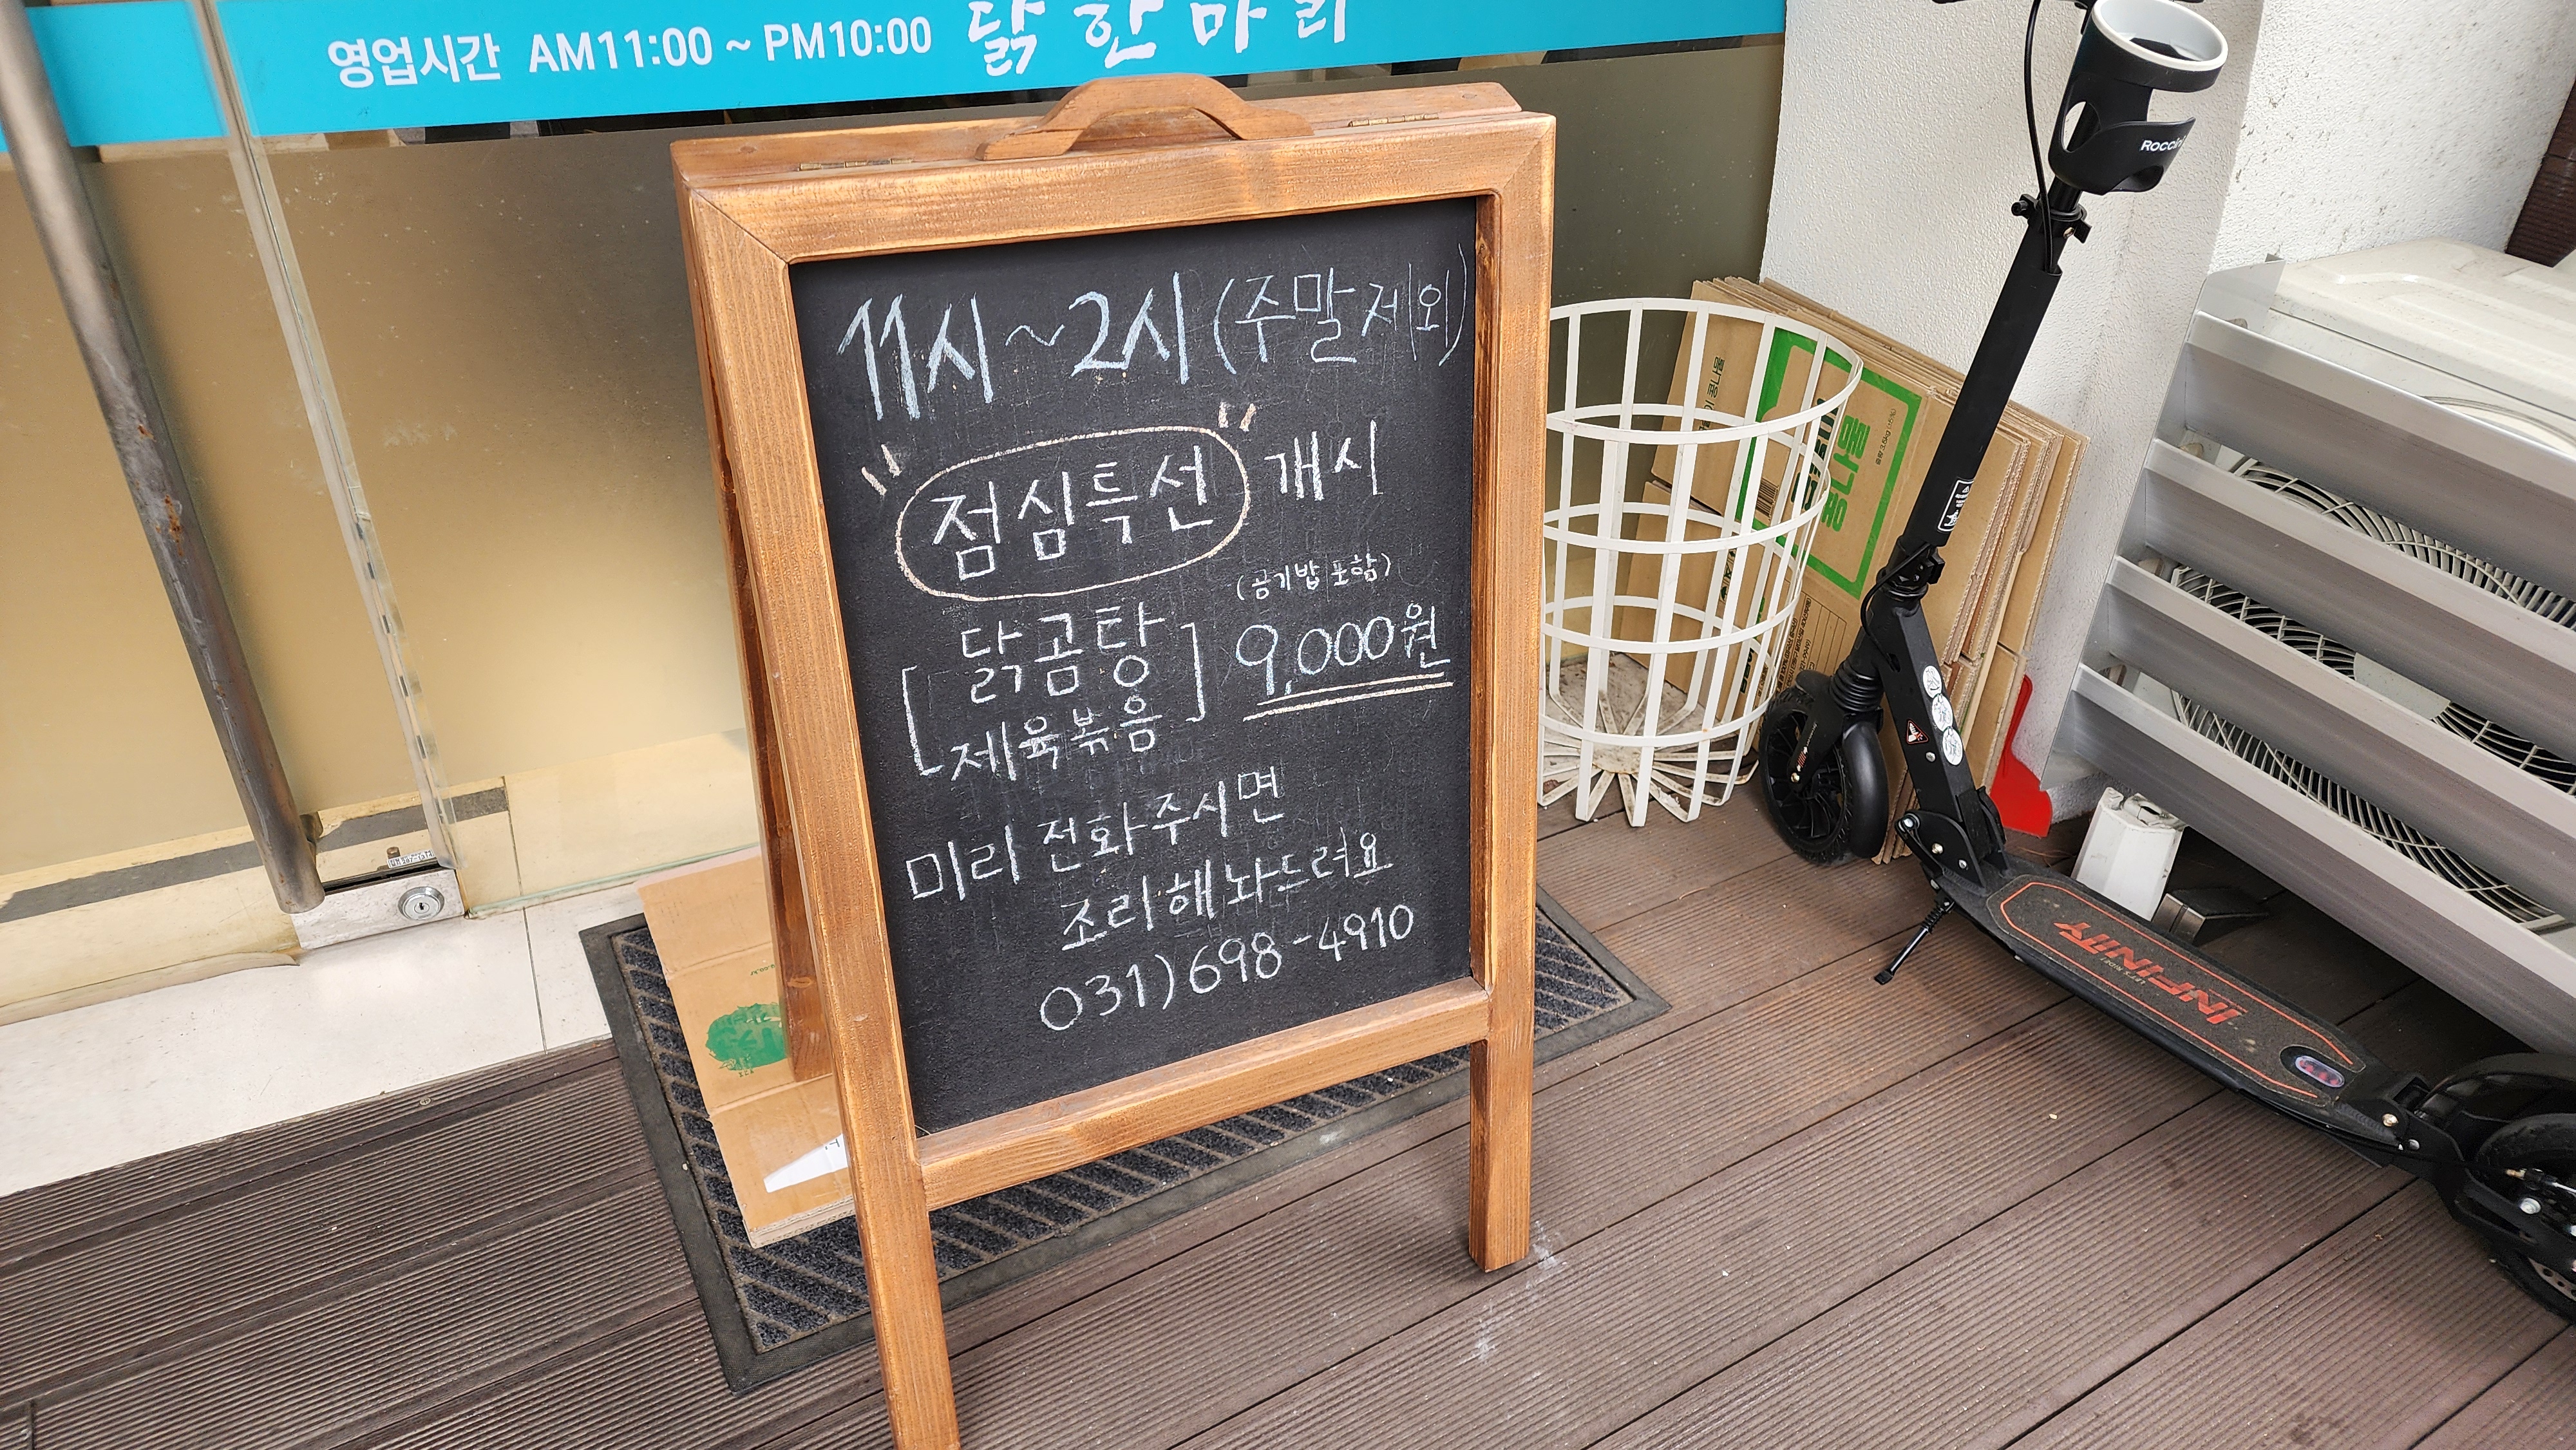 영업시간 AM11:00 ~ PM10:00 닭한마리
11시~2시 (주말제외)
점심특선 개시
(공기밥 포함)
[닭곰탕
제육볶음] 9,000원
미리 전화주시면
조리해놔드려요
031)698-4910
Roccin
콩나물
INFINITY
LET'S RIDE!